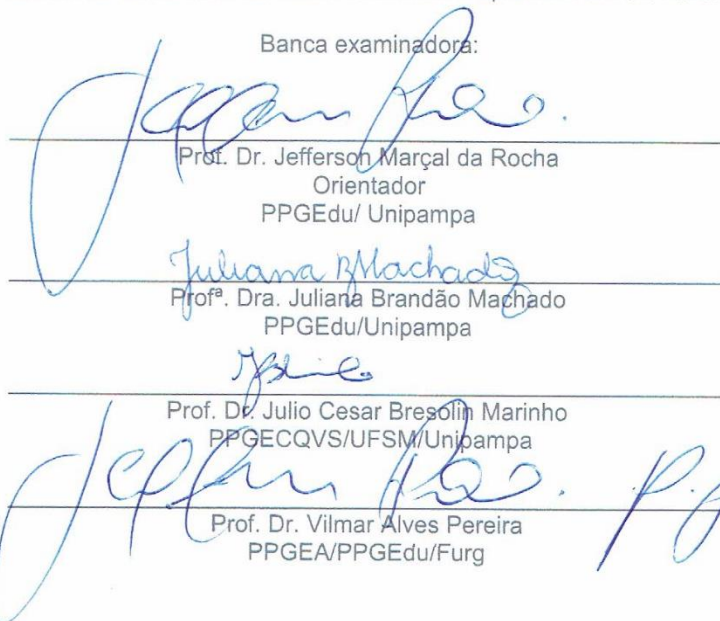 Banca examinadora:
Prof. Dr. Jefferson Marçal da Rocha
Orientador
PPGEdu/ Unipampa
Juliana BMachado
Profª. Dra. Juliana Brandão Machado
PPGEdu/Unipampa
Prof. Dr. Julio Cesar Bresolin Marinho
PPGECQVS/UFSM/Unipampa
Prof. Dr. Vilmar Alves Pereira
PPGEA/PPGEdu/Furg